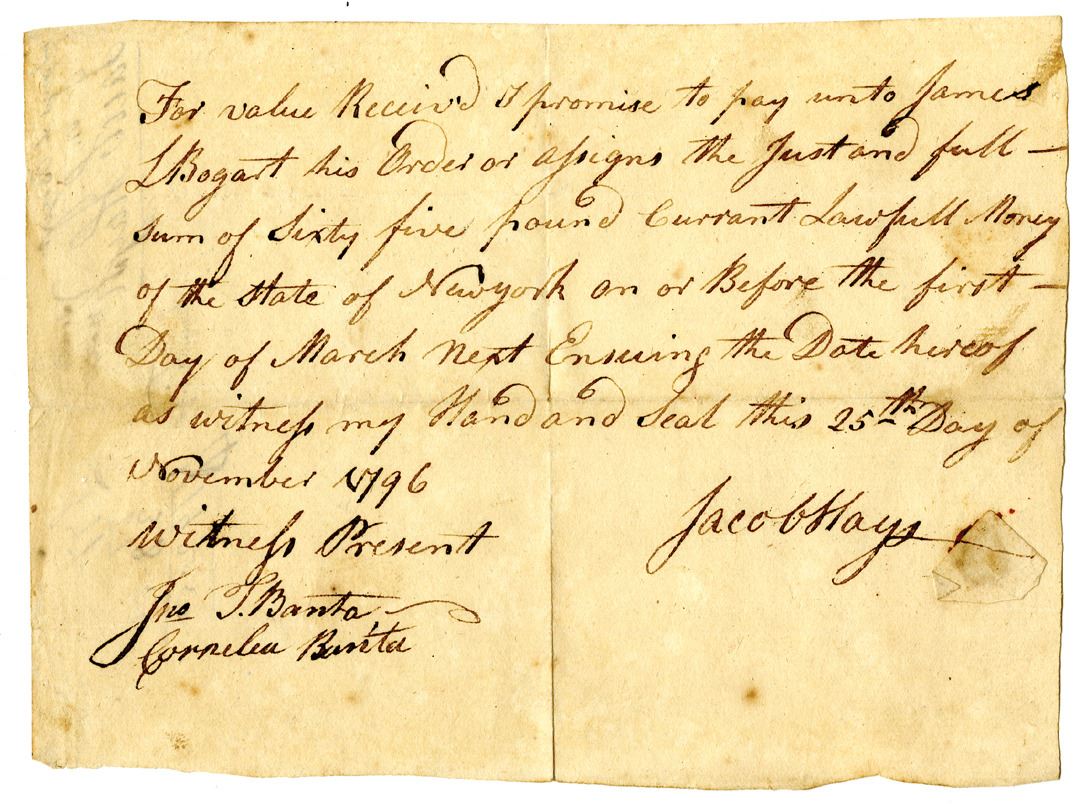 For value Receivd I promise to pay unto James
L Bogart his Order or assigns the Just and full —
sum of Sixty five pound Currant Lawfull Money
of the state of Newyork on or Before the first —
Day of March Next Ensuing the Date hereof
as witness my Hand and Seal this 25th Day of
November 1796
Witness Present
Jacob Hays
Jno T. Banta
Cornelea Banta